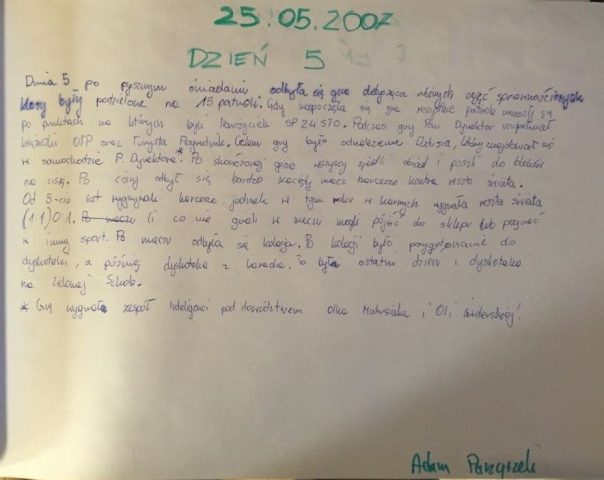 25.05.2007
DZIEŃ 5
Dnia 5 po pysznym śniadaniu odbyła się gra dotycząca różnych zajęć sprawnościowych
klasy były podzielone na 15 patroli. Gdy rozpoczęła się gra wszystkie patrole
po punktach na których byli Nauczyciele SP 24 STO. Podczas gry Pan Dyrektor
OTP oraz Turysta Przyrodnik. Celem gry było odnalezienie Dzisia, który znajdował się
w samochodzie P. Dyrektora*. Po skończonej grze wszyscy zjedli obiad i poszli do bloków
na ciszę. Po ciszy odbył się bardzo zacięty mecz harcerze kontra reszta świata.
Od 5-ciu lat wygrywali harcerze, jednak w tym roku w karnych wygrała reszta świata
(1:1) 0:1. Po meczu Ci co nie grali w meczu mogli pójść do sklepu lub pograć
w inny sport. Po meczu odbyła się kolacja. Po kolacji było przygotowanie do
dyskoteki, a później dyskoteka z karaoke. To był ostatni dzień i dyskoteka
na Zielonej Szkole.
* Grę wygrała zespół Inteligenci pod dowództwem Olka Matusiaka i Oli Świderskiej!
Adam Parzyszek